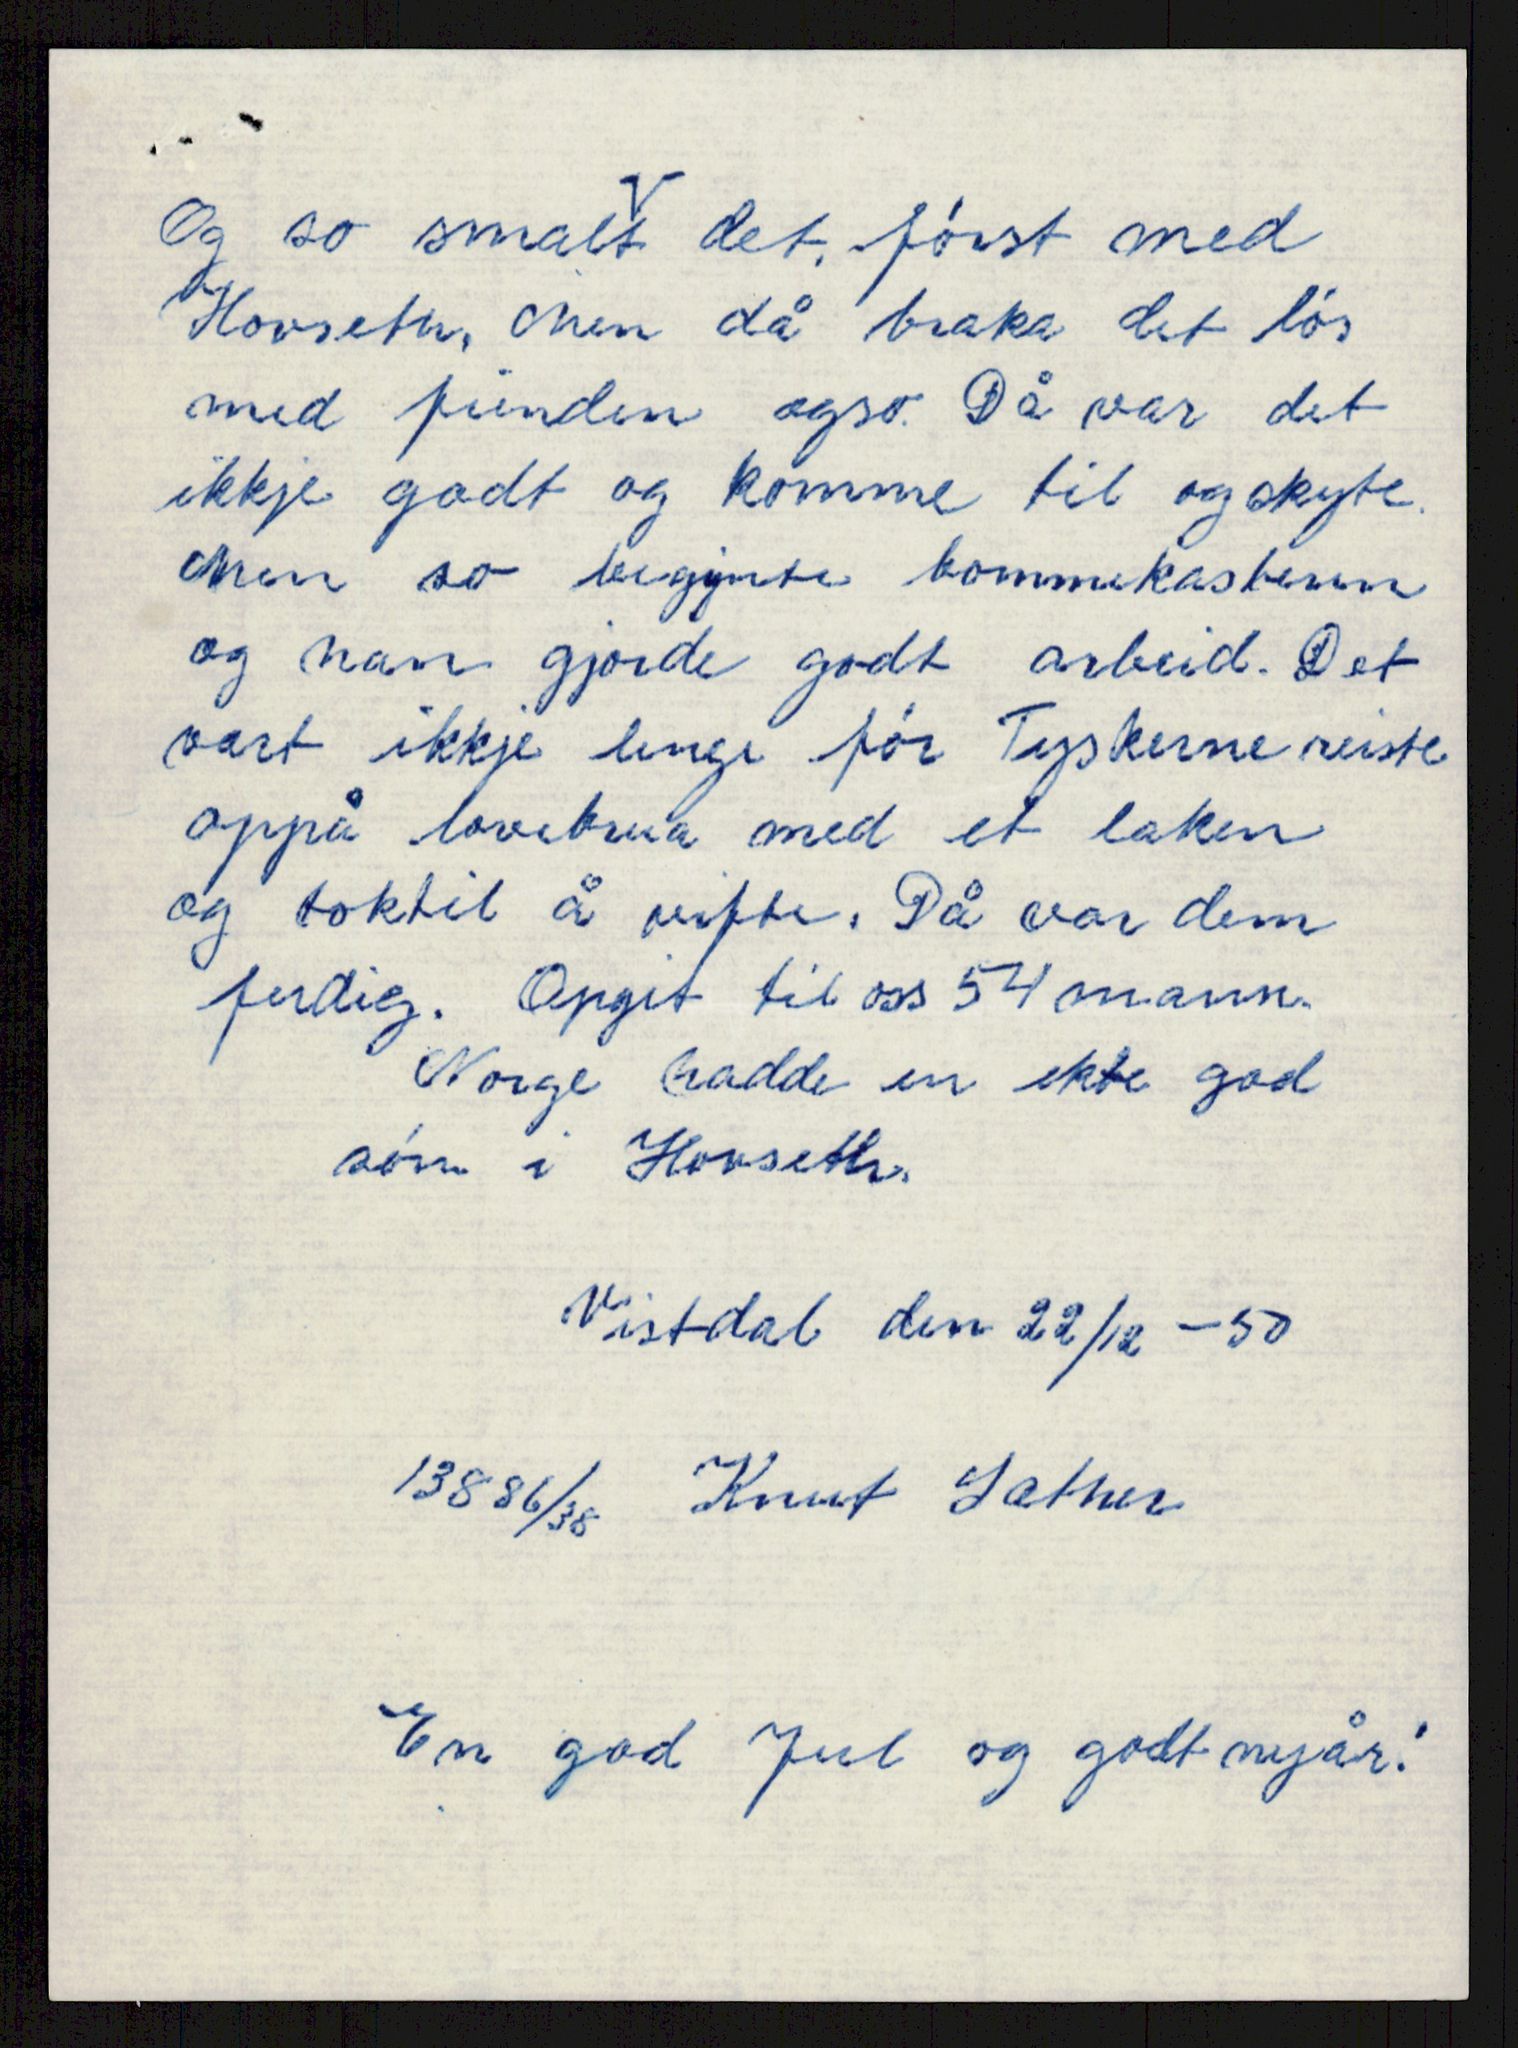 V
Og so smalt det, först med
Hovseth, Men då braka det lös
med fienden ogso. Då var det
ikkje godt og komme til og skyte.
Men so begynte bommekasteren
og han gjorde godt arbeid. Det
vart ikkje lenge för Tyskerne reiste
oppå lovebrua med et laken
og tok til å vifte. Då var dem
ferdig. Opgit til oss 54 mann.
Norge hadde en ekte god
sön i Hovseth.
Vistdal den 22/12 - 50
13886/38 Knut Sæther
En god Jul og godt nyår!